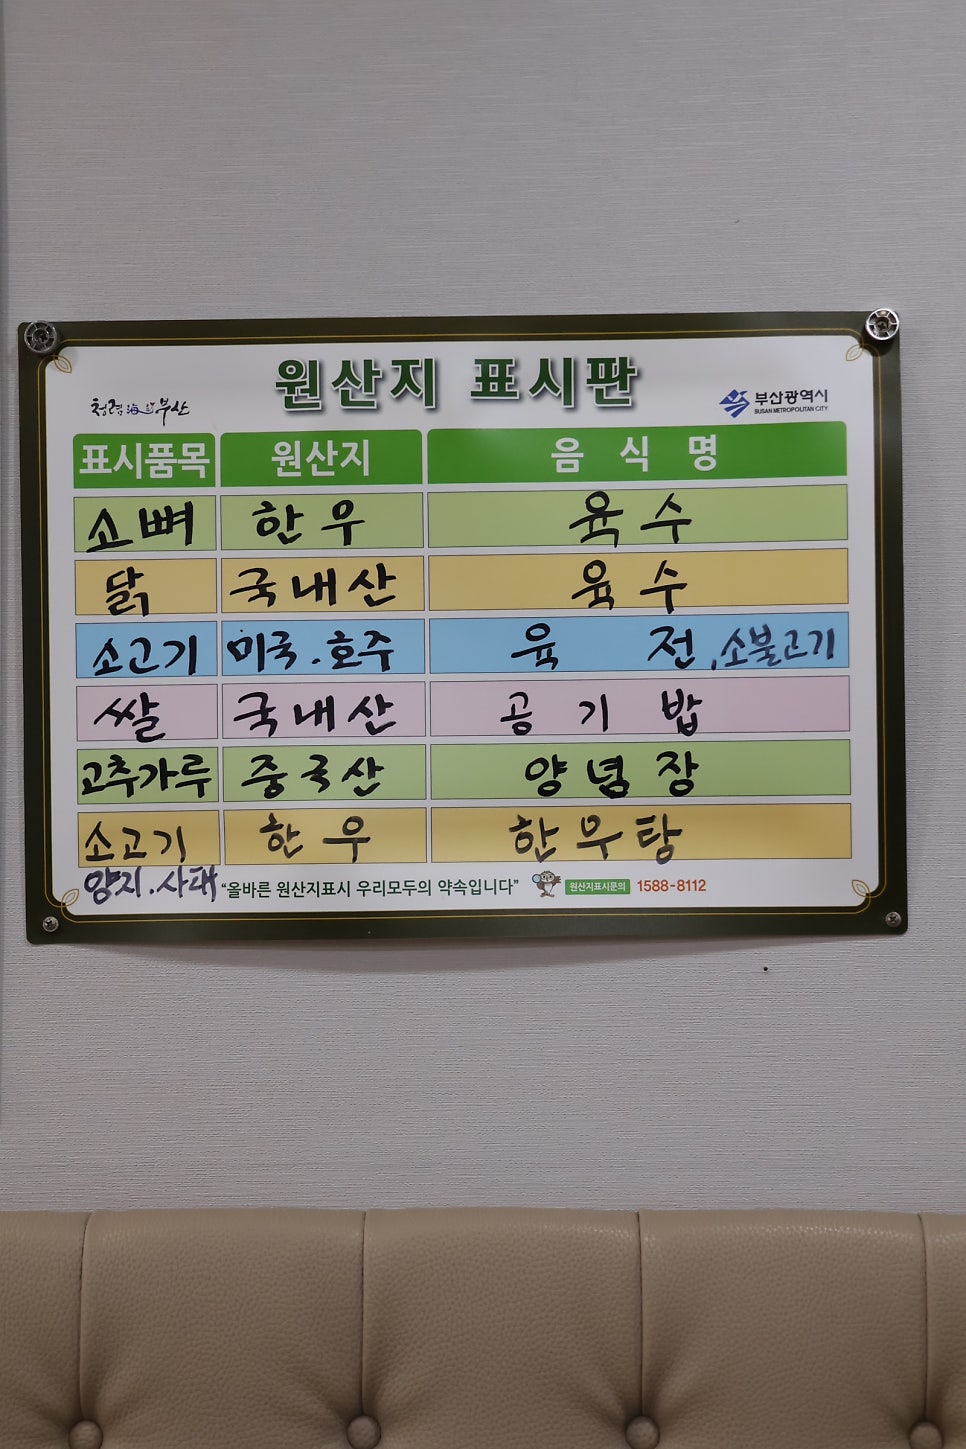 원산지 표시판
청렴海요부산
부산광역시
BUSAN METROPOLITAN CITY
표시품목 원산지 음식명
소뼈 한우 육수
닭 국내산 육수
소고기 미국.호주 육전,소불고기
쌀 국내산 공기밥
고추가루 중국산 양념장
소고기 한우 한우탕
양지.사태
"올바른 원산지표시 우리모두의 약속입니다" 원산지표시문의 1588-8112